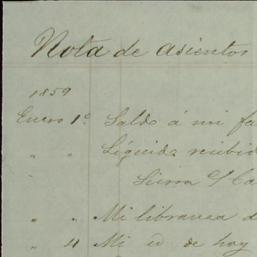 Nota de asientos
1859
Enero 1º Saldo á mi fa
" " Líquido recibid
Sierra c/ Ca
" " Mi libranza d
" 11 Mi id de hoy